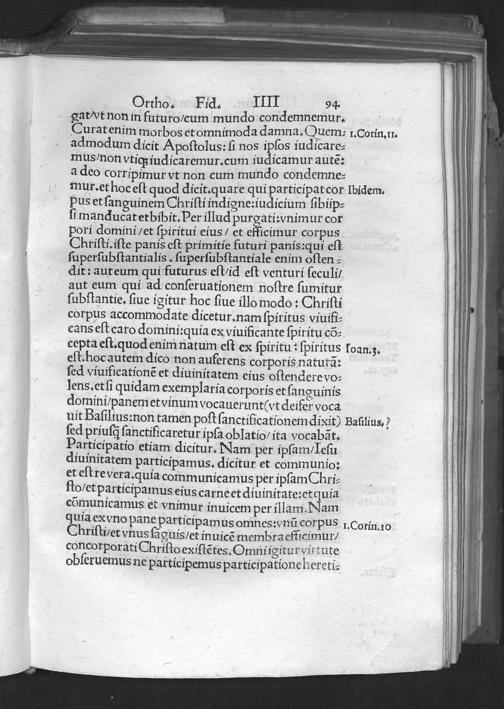 Ortho. Fid. IIII 94
gat/vt non in futuro/cum mundo condemnemur.
Curat enim morbos et omnimoda damna. Quem= 1.Corin,11.
admodum dicit Apostolus: si nos ipsos iudicare=
mus/non vtiqꝫ iudicaremur. cum iudicamur autē:
a deo corripimur vt non cum mundo condemne=
mur. et hoc est quod dicit. quare qui participat cor Ibidem.
pus et sanguinem Christi indigne: iudicium sibiip=
si manducat et bibit. Per illud purgati: vnimur cor
pori domini/et spiritui eius/ et efficimur corpus
Christi. iste panis est primitie futuri panis: qui est
supersubstantialis. supersubstantiale enim osten=
dit: aut eum qui futurus est/id est venturi seculi/
aut eum qui ad conseruationem nostre sumitur
substantie. siue igitur hoc siue illo modo: Christi
corpus accommodate dicetur. nam spiritus viuifi=
cans est caro domini: quia ex viuificante spiritu cō=
cepta est. quod enim natum est ex spiritu: spiritus Ioan.3.
est. hoc autem dico non auferens corporis naturā:
sed viuificationē et diuinitatem eius ostendere vo=
lens. et si quidam exemplaria corporis et sanguinis
domini/panem et vinum vocauerunt(vt deifer voca
uit Basilius: non tamen post sanctificationem dixit) Basilius,?
sed priusqꝫ sanctificaretur ipsa oblatio/ita vocabāt.
Participatio etiam dicitur. Nam per ipsam/Iesu
diuinitatem participamus. dicitur et communio:
et est re vera. quia communicamus per ipsam Chri=
sto/et participamus eius carne et diuinitate: et quia
cōmunicamus et vnimur inuicem per illam. Nam
quia ex vno pane participamus omnes: vnū corpus 1.Corin.10
Christi/et vnus sāguis/et inuicē membra efficimur/
concorporati Christo existētes. Omni igitur virtute
obseruemus ne participemus participatione hereti=